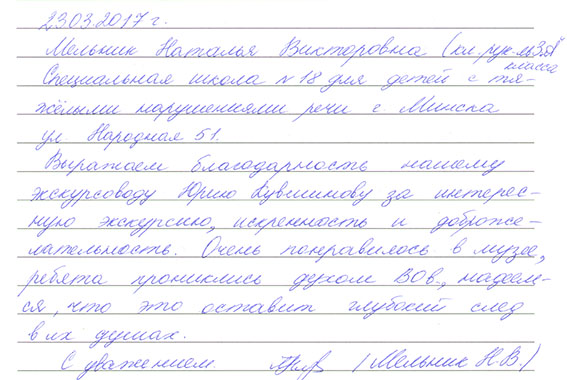 23.03.2017 г.
Мельник Наталья Викторовна (кл. рук-ль 3 "А"
класса
Специальная школа N 18 для детей с тя-
жёлыми нарушениями речи г. Минска
ул Народная 51.
Выражаем благодарность нашему
экскурсоводу Юрию Кувшинову за интерес-
ную экскурсию, искренность и доброже-
лательность. Очень понравилось в музее,
ребята прониклись духом ВОв., надеем-
ся, что это оставит глубокий след
в их душах.
С уважением. (Мельник Н.В.)